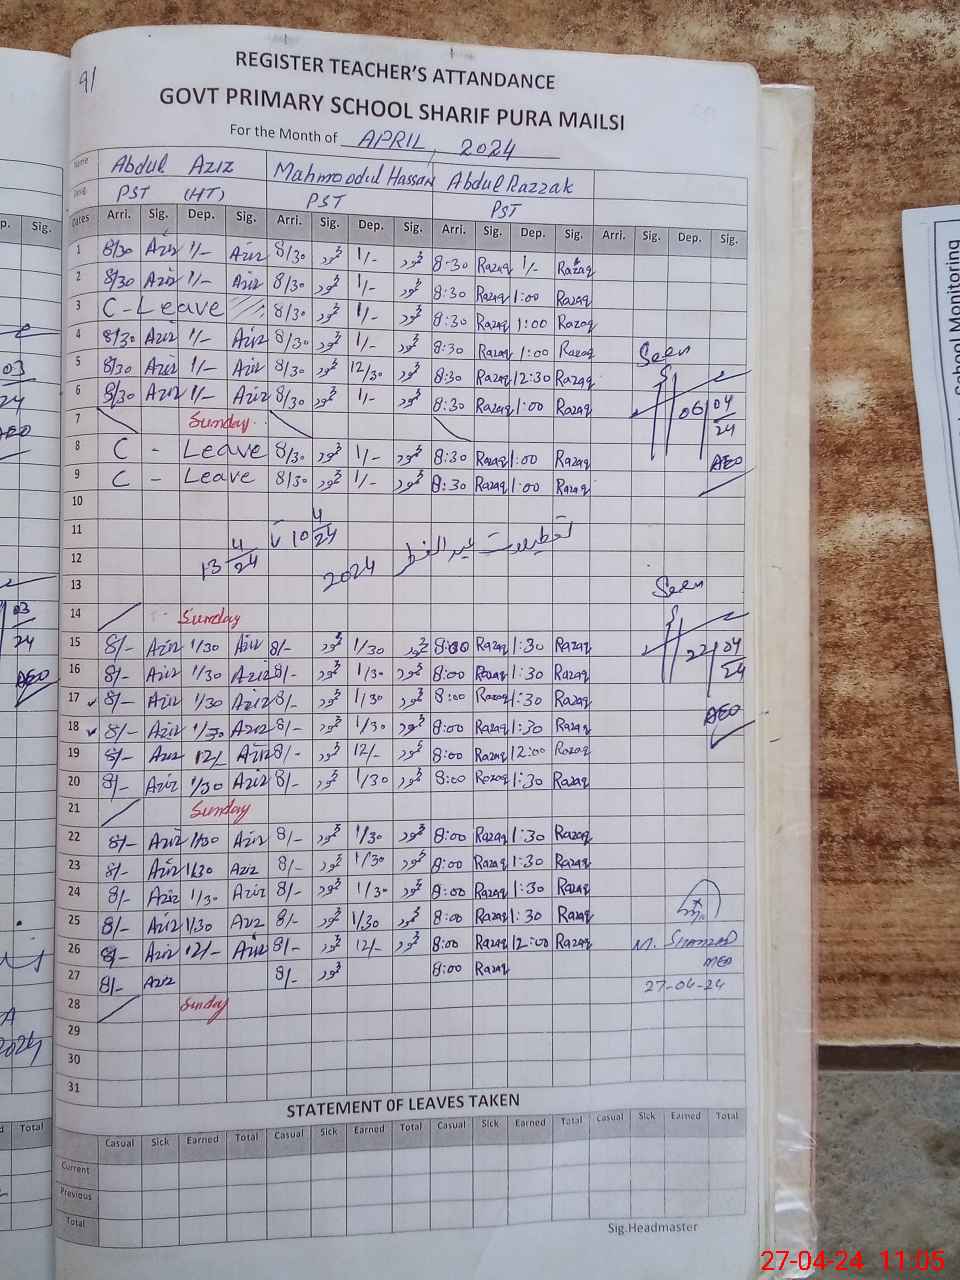 91
REGISTER TEACHER'S ATTANDANCE
GOVT PRIMARY SCHOOL SHARIF PURA MAILSI
For the Month of APRIL, 2024
Name Abdul Aziz Mahmoodul Hassan Abdul Razzak
Desig. PST (HT) PST PST
Dates Arri. Sig. Dep. Sig. Arri. Sig. Dep. Sig. Arri. Sig. Dep. Sig. Arri. Sig. Dep. Sig.
1 8/30 Aziz 1/- Aziz 8/30 محمود 1/- محمود 8:30 Razaq 1/- Razaq
2 8/30 Aziz 1/- Aziz 8/30 محمود 1/- محمود 8:30 Razaq 1:00 Razaq
3 C-Leave 8/30 محمود 1/- محمود 8:30 Razaq 1:00 Razaq
4 8/30 Aziz 1/- Aziz 8/30 محمود 1/- محمود 8:30 Razaq 1:00 Razaq Seen
5 8/30 Aziz 1/- Aziz 8/30 محمود 12/30 محمود 8:30 Razaq 12:30 Razaq
6 8/30 Aziz 1/- Aziz 8/30 محمود 1/- محمود 8:30 Razaq 1:00 Razaq 06/04/24
7 Sunday
8 C - Leave 8/30 محمود 1/- محمود 8:30 Razaq 1:00 Razaq AEO
9 C - Leave 8/30 محمود 1/- محمود 8:30 Razaq 1:00 Razaq
10
11 10 4/24 تعطیلات عید الفطر
12 13 4/24 2024
13 Seen
14 Sunday
15 8/- Aziz 1/30 Aziz 8/- محمود 1/30 محمود 8:00 Razaq 1:30 Razaq 22/04/24
16 8/- Aziz 1/30 Aziz 8/- محمود 1/30 محمود 8:00 Razaq 1:30 Razaq
17 8/- Aziz 1/30 Aziz 8/- محمود 1/30 محمود 8:00 Razaq 1:30 Razaq AEO
18 8/- Aziz 1/30 Aziz 8/- محمود 1/30 محمود 8:00 Razaq 1:30 Razaq
19 8/- Aziz 12/- Aziz 8/- محمود 12/- محمود 8:00 Razaq 12:00 Razaq
20 8/- Aziz 1/30 Aziz 8/- محمود 1/30 محمود 8:00 Razaq 1:30 Razaq
21 Sunday
22 8/- Aziz 1/30 Aziz 8/- محمود 1/30 محمود 8:00 Razaq 1:30 Razaq
23 8/- Aziz 1/30 Aziz 8/- محمود 1/30 محمود 8:00 Razaq 1:30 Razaq
24 8/- Aziz 1/30 Aziz 8/- محمود 1/30 محمود 8:00 Razaq 1:30 Razaq
25 8/- Aziz 1/30 Aziz 8/- محمود 1/30 محمود 8:00 Razaq 1:30 Razaq
26 8/- Aziz 12/- Aziz 8/- محمود 12/- محمود 8:00 Razaq 12:00 Razaq M. Shahzad
27 8/- Aziz 8/- محمود 8:00 Razaq MEA
27-04-24
28 Sunday
29
30
31
STATEMENT OF LEAVES TAKEN
Casual Sick Earned Total Casual Sick Earned Total Casual Sick Earned Total Casual Sick Earned Total
Current
Previous
Total
Sig.Headmaster
p. Sig.
03
24
AEO
03
24
AEO
2024
Total
School Monitoring
27-04-24 11:05